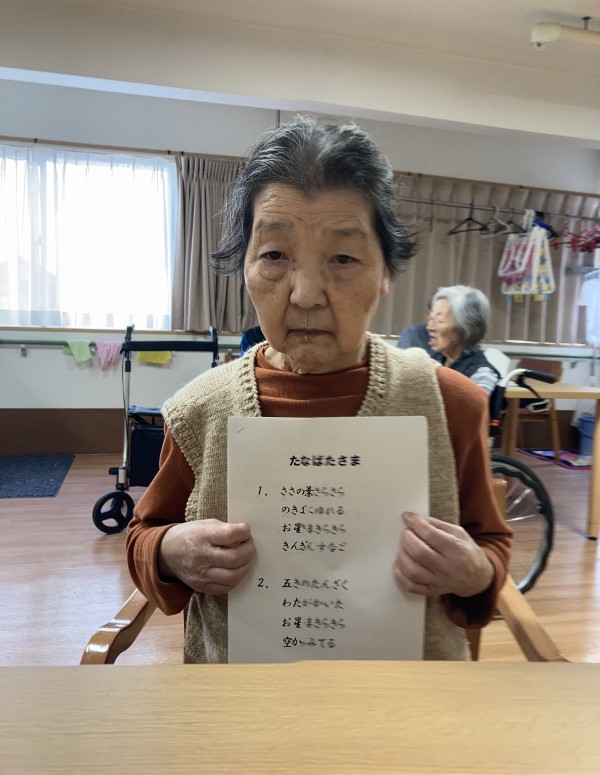 たなばたさま
1. ささの葉さらさら
ゆれる
お星 まきらきら
きんぎんすなご
2. 五 のたんざく
わた がかいた
お星 まきらきら
空からみてる